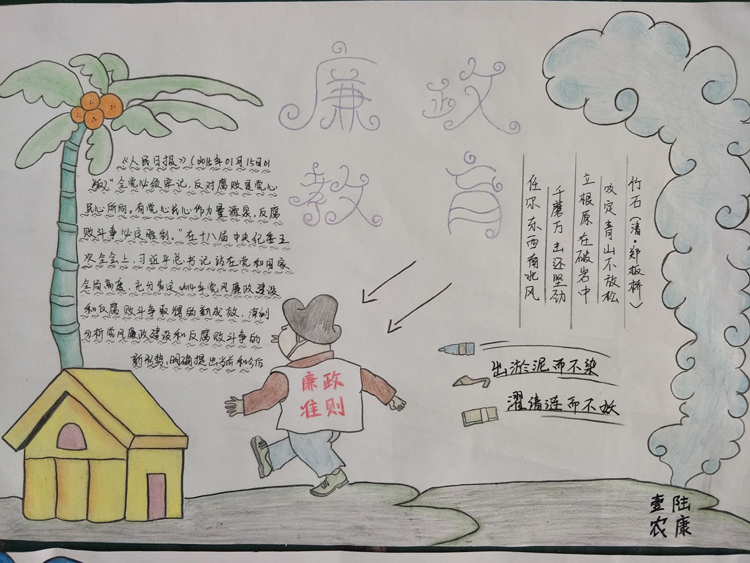 廉政
教育
《人民日报》(2015年01月15日01
版)“全党必须牢记,反对腐败是党心
民心所向,有党心民心作力量源泉,反腐
败斗争必定胜利。”在十八届中央纪委五
次全会上,习近平总书记站在党和国家
全局高度,充分肯定2014年党风廉政建设
和反腐败斗争取得的新成效,深刻
分析党风廉政建设和反腐败斗争的
新形势,明确提出当前和今后
竹石(清·郑板桥)
咬定青山不放松
立根原在破岩中
千磨万击还坚劲
任尔东西南北风
廉政
准则
出淤泥而不染
濯清涟而不妖
壹陆
农康